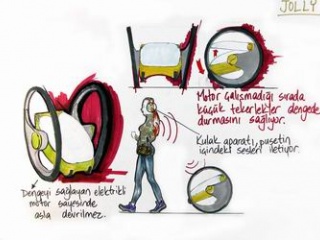 JOLLY
Motor çalışmadığı sırada
küçük tekerlekler dengede
durmasını sağlıyor.
Kulak aparatı, pusetin
içindeki sesleri iletiyor.
Dengeyi sağlayan elektrikli
motor sayesinde
asla devrilmez.